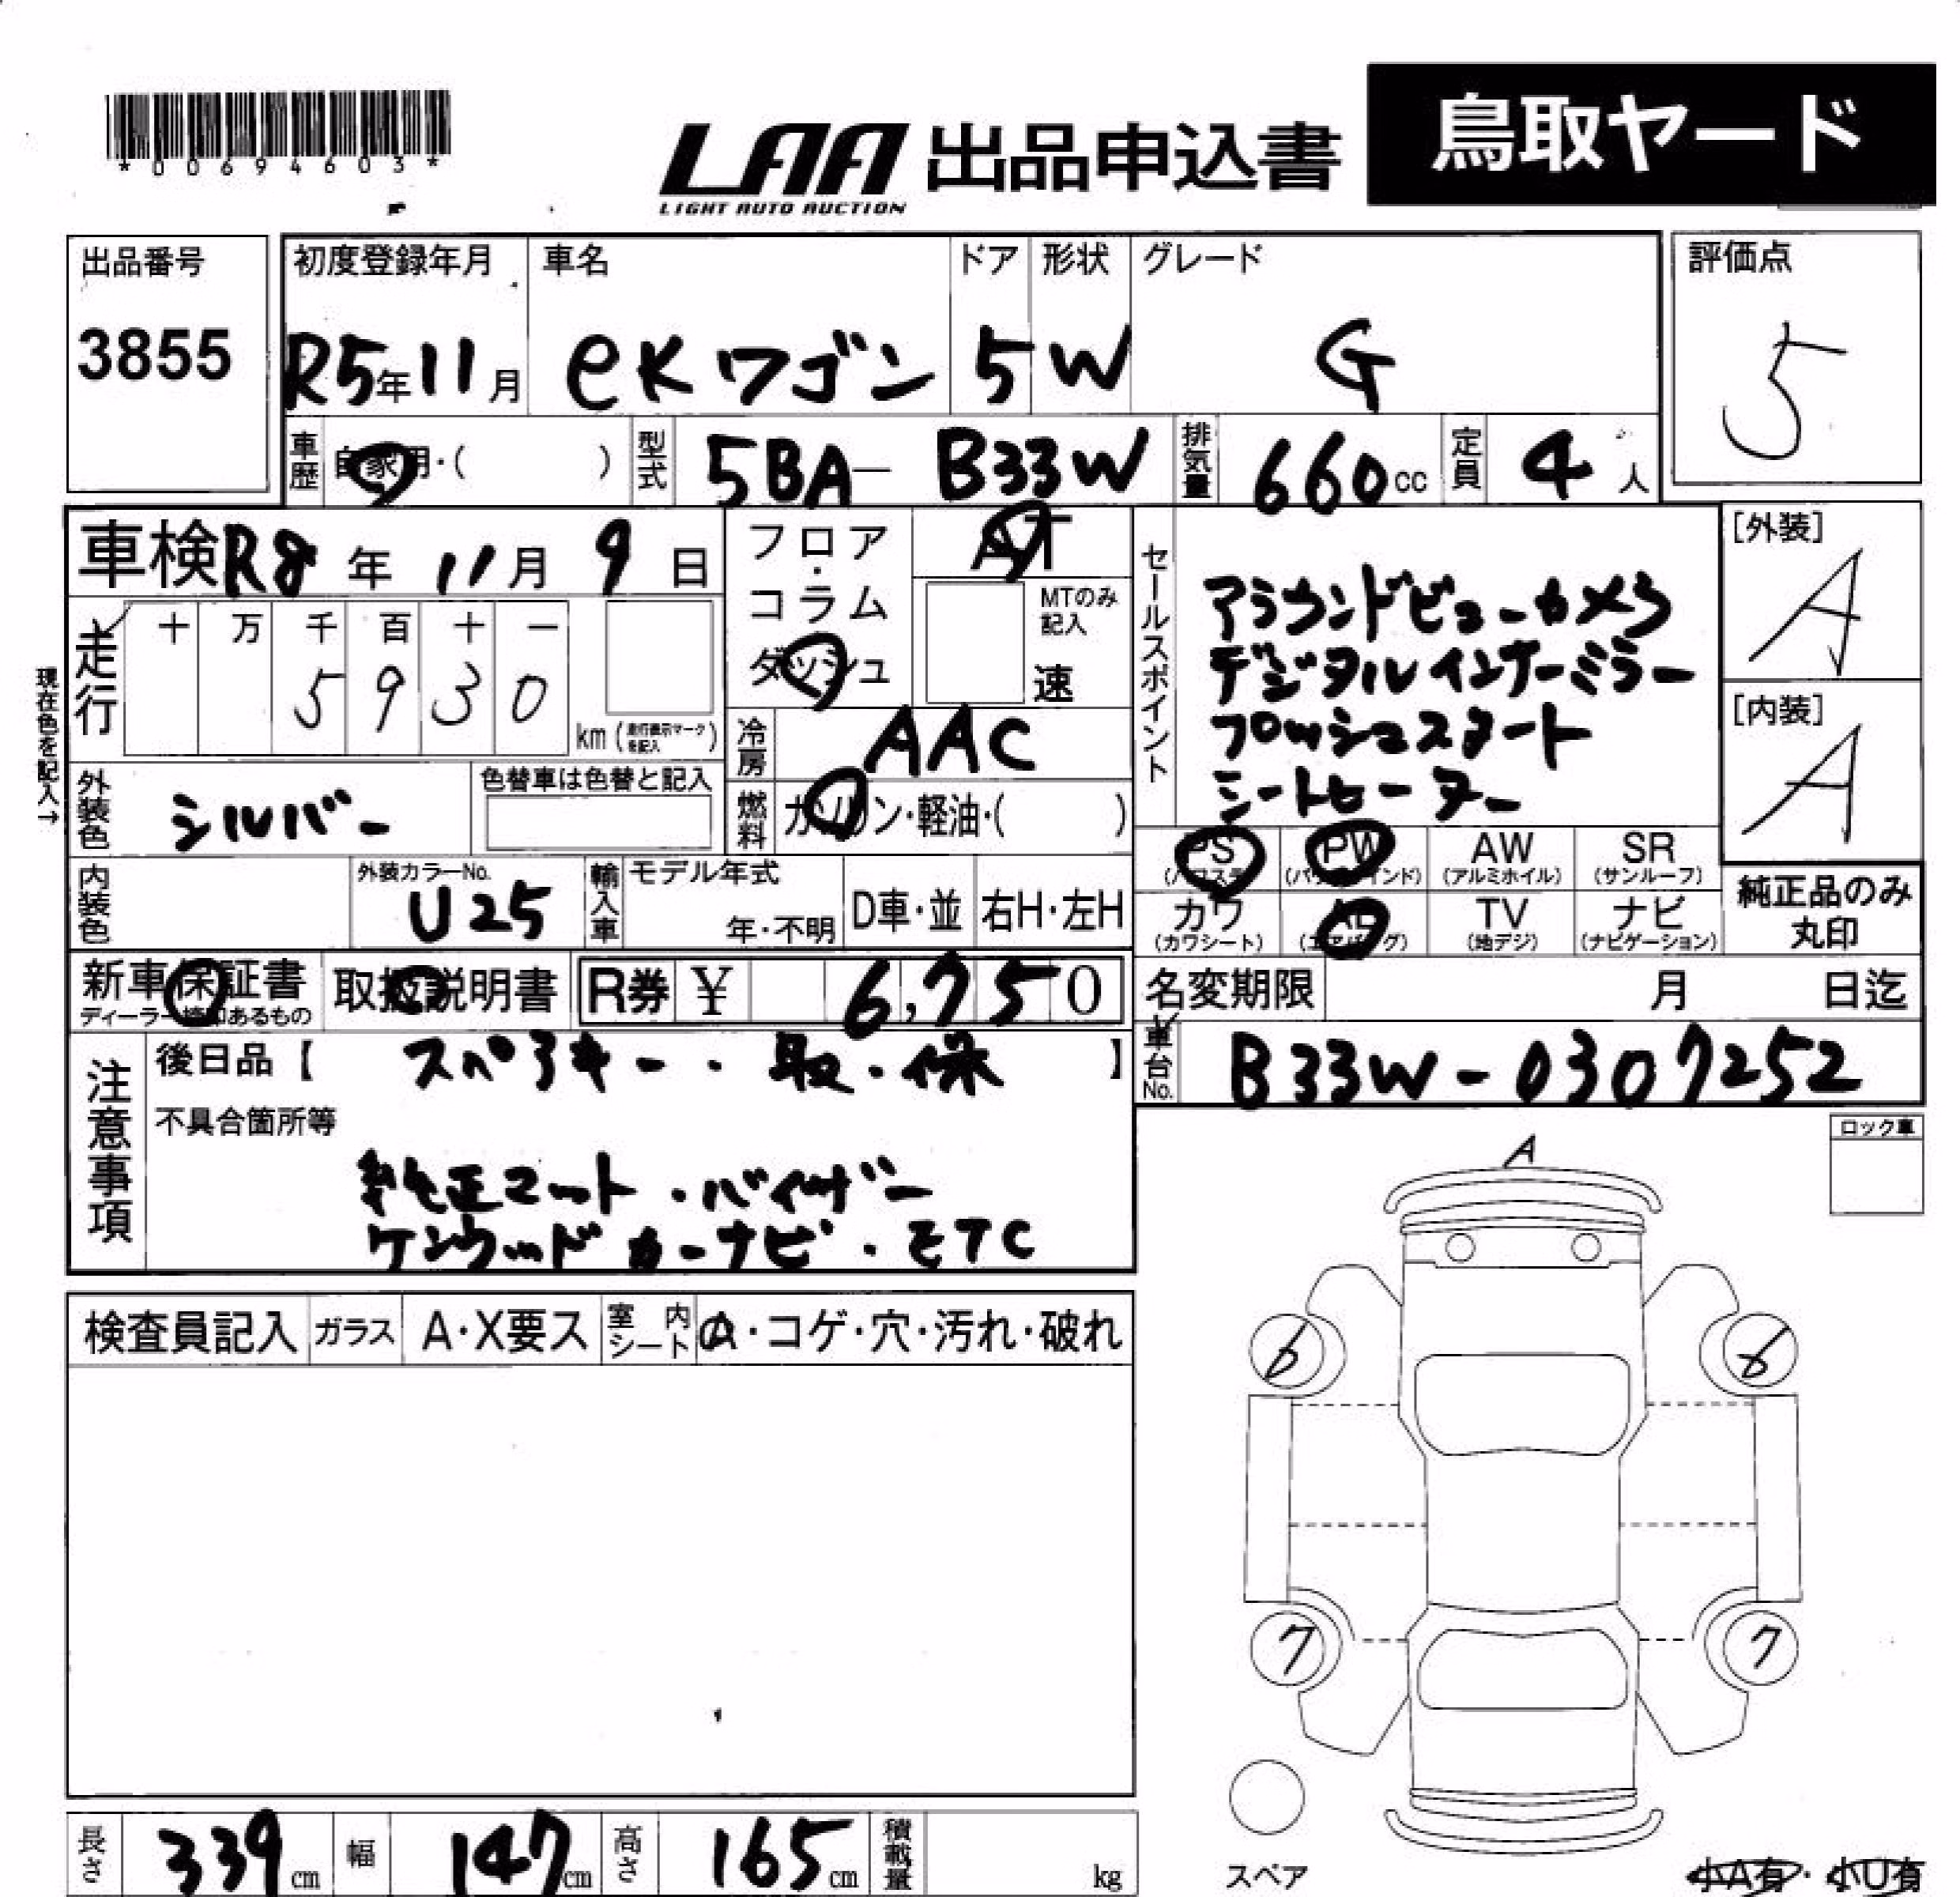 *00694603*
LAA 出品申込書 鳥取ヤード
LIGHT AUTO AUCTION
出品番号 3855
初度登録年月 R5年11月
車名 eKワゴン
ドア 5
形状 W
グレード G
評価点 5
車歴 自家用・( )
型式 5BA- B33W
排気量 660cc
定員 4人
車検 R8年11月9日
フロア・コラム
ダッシュ
AT
MTのみ記入
速
走行 十 万 千 百 十 一
5 9 3 0
km(走行表示マークを記入)
現在色を記入→
外装色 シルバー
色替車は色替と記入
冷房 AAC
燃料 ガソリン・軽油・( )
内装色
外装カラーNo. U25
輸入車 モデル年式 年・不明 D車・並 右H・左H
セールスポイント
アラウンドビューカメラ
デジタルインナーミラー
プッシュスタート
シートヒーター
[外装] A
[内装] A
PS (パワステ) PW (パワーウインド) AW (アルミホイル) SR (サンルーフ)
カワ (カワシート) AB (エアバッグ) TV (地デジ) ナビ (ナビゲーション)
純正品のみ丸印
新車保証書 ディーラー検印あるもの
取扱説明書
R券 ¥ 6,750
名変期限 月 日迄
車台No. B33W-0307252
注意事項
後日品【 スペアキー・取・保 】
不具合箇所等
純正マット・バイザー
ケンウッドカーナビ・ETC
ロック車
A
検査員記入 ガラス A・X要ス 室内シート A・コゲ・穴・汚れ・破れ
6 6
7 7
スペア
小A有・小U有
長さ 339cm 幅 147cm 高さ 165cm 積載量 kg